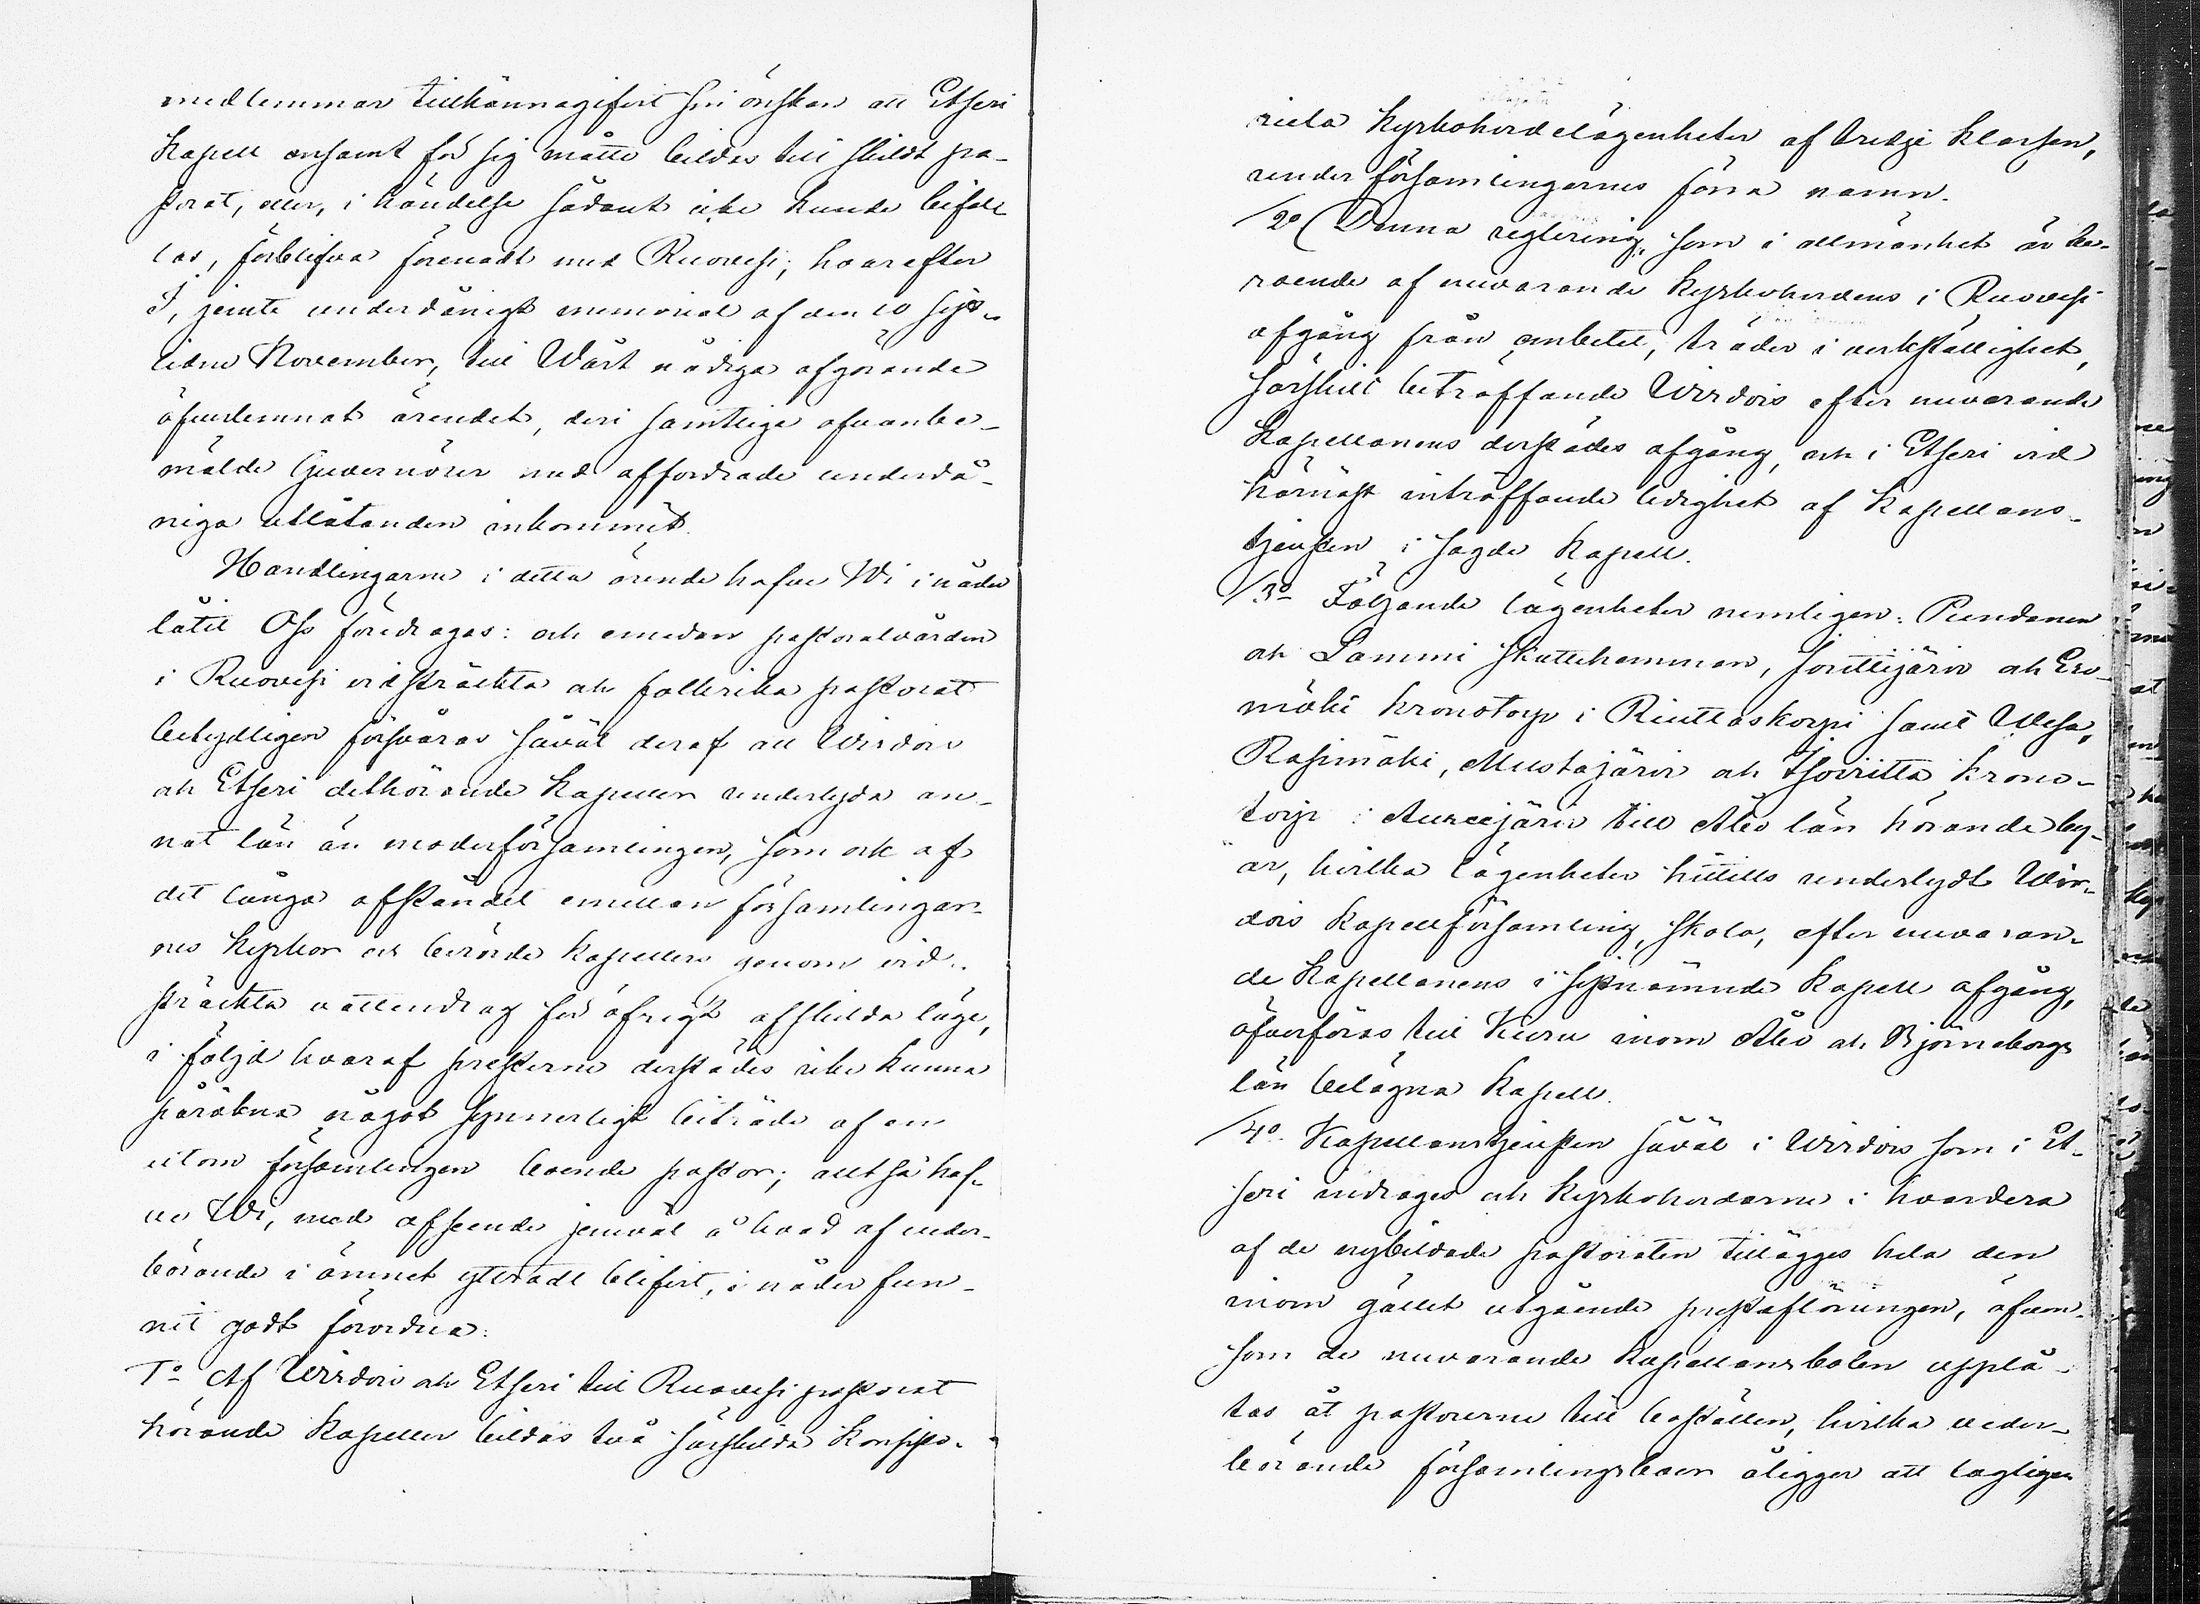 medlemmar tillkännagifvit sin önskan att Etseri
Kapell ensamt för sig måtte bildas till skildt pa-
storat, eller, i händelse sådant icke kunde bifal-
las, förblifva förenadt med Ruovesi; hvarefter
I, jemte underdånigt memorial af den 10 sist-
lidne November, till Wårt nådiga afgörande
öfverlemnat ärendet, deri samtlige ofvanbe-
mälde Guvernörer med affordrade underdå-
niga utlåtanden inkommit.
Handlingarne i detta ärende hafve Wi i nåder
låtit Oss föredragas: och emedan pastoralvården
i Ruovesi vidsträckta och folkrika pastorat
betydligen försvåras såväl deraf att Wirdois
och Etseri dethörande Kapeller underlyda an-
nat län än moderförsamlingen, som ock af
det långa afståndet emellan församlingar-
nes kyrkor och berörde kapellers genom vid-
sträckta vattendrag för öfrigt afskilda läge,
i följd hvaraf presterne derstädes icke kunna
påräkna något synnerligt biträde af en
utom församlingen boende pastor; alltså haf-
ve Wi, med afseende jemväl å hvad af veder-
börande i ämnet yttradt blifvit, i nåder fun-
nit godt förordna:
1º Af Wirdois och Etseri till Ruovesi pastorat
hörande Kapeller bildas två särskilda Konsisto-
riela Kyrkoherdelägenheter af tredje klassen,
under församlingarnes förra namn.
2º Denna reglering, som i allmänhet är be-
roende af nuvarande Kyrkoherdens i Ruovesi
afgång från embetet, träder i verkställighet,
särskilt beträffande Wirdois efter nuvarande
Kapellanens derstädes afgång, och i Etseri vid
härnäst inträffande ledighet af Kapellans-
tjensten i sagde Kapell.
3º Följande lägenheter nemligen: Pundanen
och Lammi skattehemman, Soittijärvi och Ero-
mäki kronotorp i Riuttaskorpi samt Ulesa,
Rasimäki, Mustajärvi och Hoiritta krono-
torp i Aureejärvi till Åbo län hörande by-
ar, hvilka lägenheter hittills underlydt Wir-
dois Kapellförsamling, skola, efter nuvaran-
de Kapellanens i sistnämnde Kapell afgång,
öfverföras till Kuru inom Åbo och Björneborgs
län belägna Kapell.
4º Kapellanstjensten såväl i Wirdois som i Et-
seri indrages och Kyrkoherdarne i hvardera
af de nybildade pastoraten tillägges hela den
inom gället utgående prestaflöningen, äfven-
som de nuvarande Kapellansbolen upplå-
tas åt pastorerne till boställen, hvilka veder-
börande församlingsboer åligger att lagligen